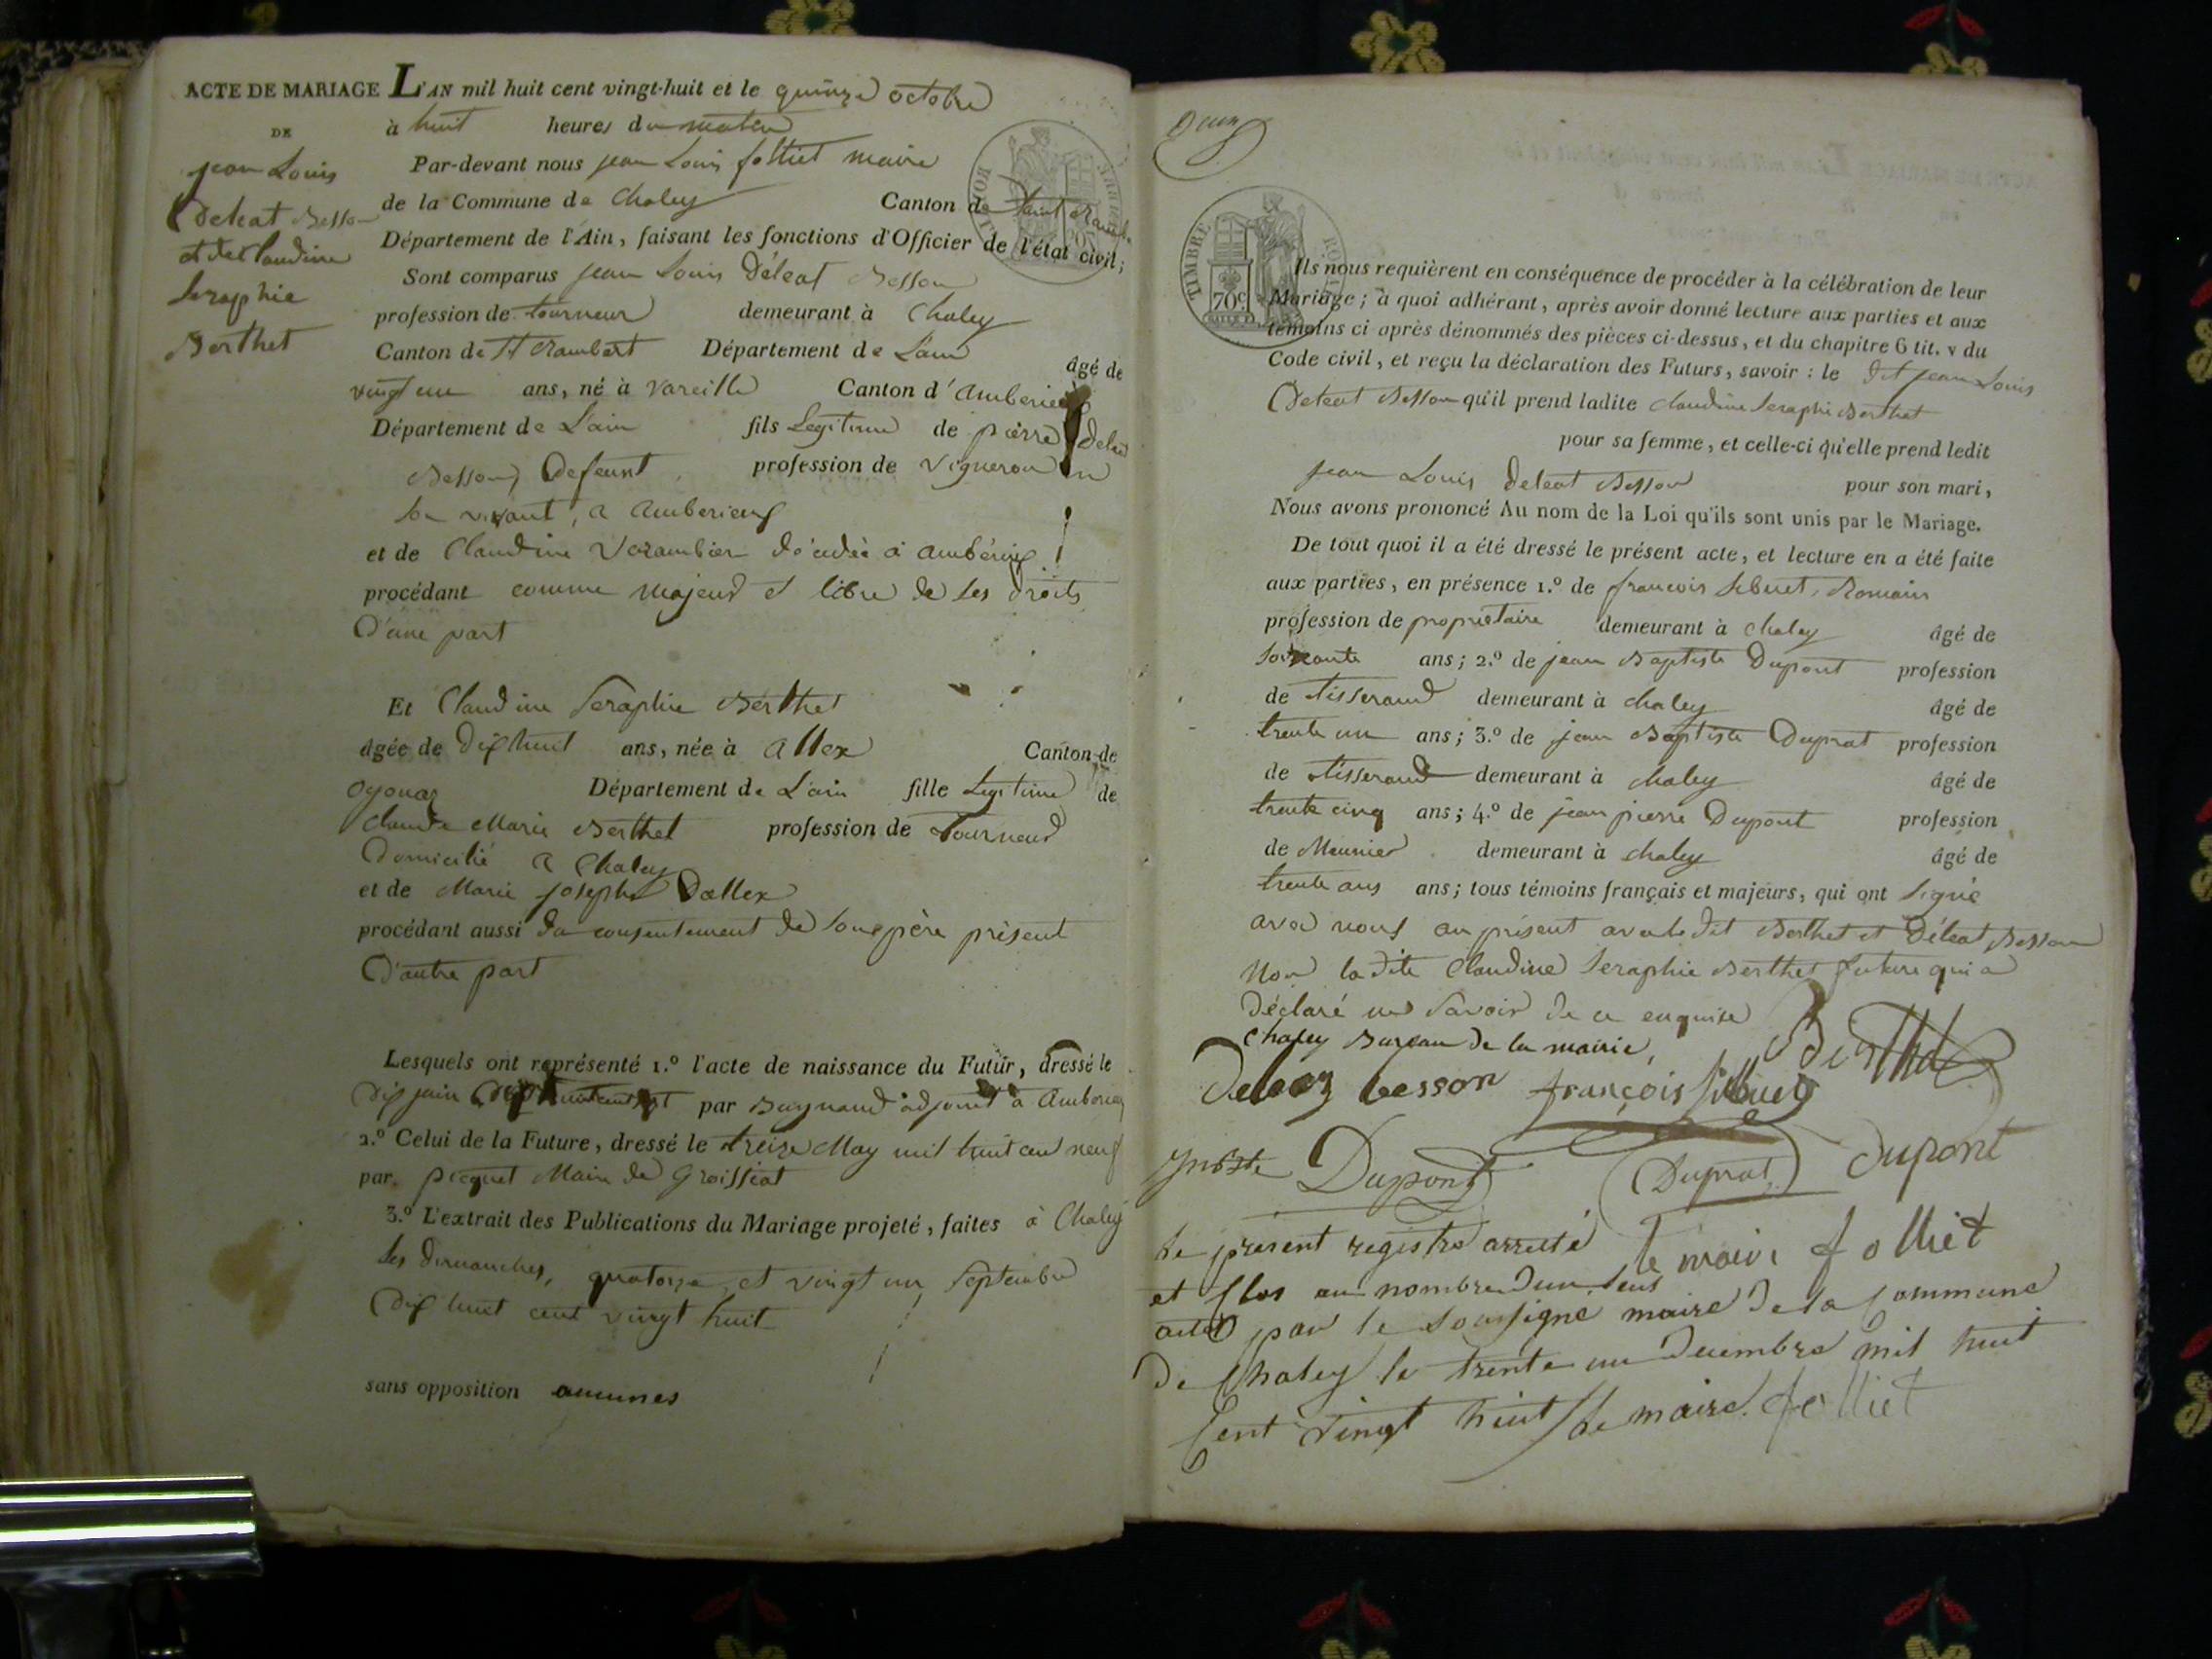 ACTE DE MARIAGE
DE
jean Louis
Deleat Besson
et de Claudine
Seraphie
Berthet
L'AN mil huit cent vingt-huit et le quinze octobre
à huit heures du matin
Par-devant nous jean Louis folliet maire
de la Commune de Chaley Canton de Saint Rambert
Département de l'Ain, faisant les fonctions d'Officier de l'état civil;
Sont comparus jean Louis Déleat Besson
profession de tourneur demeurant à Chaley
Canton de St Rambert Département de L'ain âgé de
vingt un ans, né à Vareille Canton d'amberieux
Département de L'ain fils Legitime de pierre Deleat
Besson, Defeunt profession de vigneron en
son vivant, a amberieux
et de Claudine Verambier décédée à ambérieux
procédant comme majeur et libre de ses droits
D'une part
Et Claudine Seraphie Berthet
âgée de dix huit ans, née à allex Canton de
oyonax Département de L'ain fille Legitime de
claude Marie Berthet profession de Tourneur
Domicilié a Chaley
et de Marie josephe Dallex
procédant aussi du consentement de son père présent
D'autre part
Lesquels ont représenté 1.º l'acte de naissance du Futur, dressé le
dix juin par adjoint à amberieux
2.º Celui de la Future, dressé le treize May mil huit cen neuf
par picquet Maire de Groissiat
3.º L'extrait des Publications du Mariage projeté, faites à Chaley
les dimanches, quatorze, et vingt un Septembre
dix huit cent vingt huit
sans opposition aucunes
Deux
TIMBRE ROYAL
70c
Ils nous requièrent en conséquence de procéder à la célébration de leur
Mariage; à quoi adhérant, après avoir donné lecture aux parties et aux
témoins ci après dénommés des pièces ci-dessus, et du chapitre 6 tit. v du
Code civil, et reçu la déclaration des Futurs, savoir : le dit jean Louis
Deleat Besson qu'il prend ladite claudine Seraphi Berthet
pour sa femme, et celle-ci qu'elle prend ledit
jean Louis Deleat Besson pour son mari,
Nous avons prononcé Au nom de la Loi qu'ils sont unis par le Mariage.
De tout quoi il a été dressé le présent acte, et lecture en a été faite
aux parties, en présence 1.º de francois Sibuet, Romain
profession de propriétaire demeurant à chaley âgé de
soixante ans; 2.º de jean Baptiste Dupont profession
de tisserand demeurant à chaley âgé de
trente un ans; 3.º de jean Baptiste Duprat profession
de tisserand demeurant à chaley âgé de
trente cinq ans; 4.º de jean pierre Dupont profession
de Meunier demeurant à chaley âgé de
trente ans ans; tous témoins français et majeurs, qui ont signé
avec nous au présent avec ledit Berthet et Déleat Besson
Non la dite Claudine Seraphie Berthet future qui a
Déclaré ne savoir de ce enquise
Chaley Bureau de la mairie,
Berthet
Deleaz besson françois Sibuet
Dupont Duprat Dupont
le maire folliet
Le présent registre arreté
et clos au nombre d'un seul
acte par le soussigné maire de la Commune
de Chaley le trente un decembre mil huit
Cent vingt huit le maire folliet